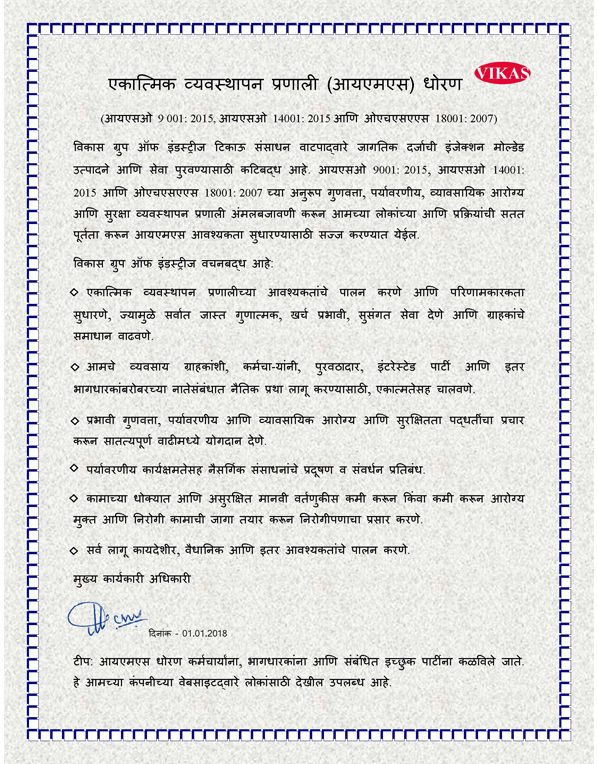 VIKAS
एकात्मिक व्यवस्थापन प्रणाली (आयएमएस) धोरण
(आयएसओ 9 001: 2015, आयएसओ 14001: 2015 आणि ओएचएसएएस 18001: 2007)
विकास ग्रुप ऑफ इंडस्ट्रीज टिकाऊ संसाधन वाटपाद्वारे जागतिक दर्जाची इंजेक्शन मोल्डेड
उत्पादने आणि सेवा पुरवण्यासाठी कटिबद्ध आहे. आयएसओ 9001: 2015, आयएसओ 14001:
2015 आणि ओएचएसएएस 18001: 2007 च्या अनुरूप गुणवत्ता, पर्यावरणीय, व्यावसायिक आरोग्य
आणि सुरक्षा व्यवस्थापन प्रणाली अंमलबजावणी करून आमच्या लोकांच्या आणि प्रक्रियांची सतत
पूर्तता करून आयएमएस आवश्यकता सुधारण्यासाठी सज्ज करण्यात येईल.
विकास ग्रुप ऑफ इंडस्ट्रीज वचनबद्ध आहे:
◇ एकात्मिक व्यवस्थापन प्रणालीच्या आवश्यकतांचे पालन करणे आणि परिणामकारकता
सुधारणे, ज्यामुळे सर्वात जास्त गुणात्मक, खर्च प्रभावी, सुसंगत सेवा देणे आणि ग्राहकांचे
समाधान वाढवणे.
◇ आमचे व्यवसाय ग्राहकांशी, कर्मचा-यांनी, पुरवठादार, इंटरेस्टेड पार्टी आणि इतर
भागधारकांबरोबरच्या नातेसंबंधात नैतिक प्रथा लागू करण्यासाठी, एकात्मतेसह चालवणे.
◇ प्रभावी गुणवत्ता, पर्यावरणीय आणि व्यावसायिक आरोग्य आणि सुरक्षितता पद्धतींचा प्रचार
करून सातत्यपूर्ण वाढीमध्ये योगदान देणे.
◇ पर्यावरणीय कार्यक्षमतेसह नैसर्गिक संसाधनांचे प्रदूषण व संवर्धन प्रतिबंध.
◇ कामाच्या धोक्यात आणि असुरक्षित मानवी वर्तणुकीस कमी करून किंवा कमी करून आरोग्य
मुक्त आणि निरोगी कामाची जागा तयार करून निरोगीपणाचा प्रसार करणे.
◇ सर्व लागू कायदेशीर, वैधानिक आणि इतर आवश्यकतांचे पालन करणे.
मुख्य कार्यकारी अधिकारी
दिनांक - 01.01.2018
टीप: आयएमएस धोरण कर्मचार्यांना, भागधारकांना आणि संबंधित इच्छुक पार्टीना कळविले जाते.
हे आमच्या कंपनीच्या वेबसाइटद्वारे लोकांसाठी देखील उपलब्ध आहे.